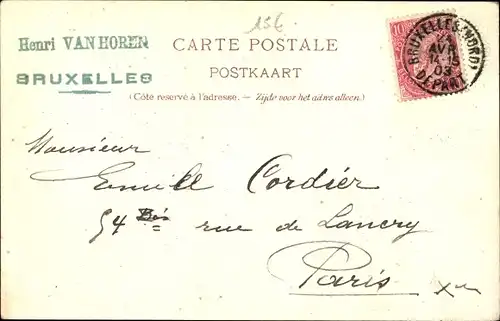 15€
Henri VAN HOREN
BRUXELLES
CARTE POSTALE
POSTKAART
(Côté réservé à l'adresse. — Zijde voor het adres alleen.)
10
BRUXELLES (NORD)
AVR
14-15
03
DEPART
Monsieur
Emile Cordier
54 Bis rue de Lancry
Paris